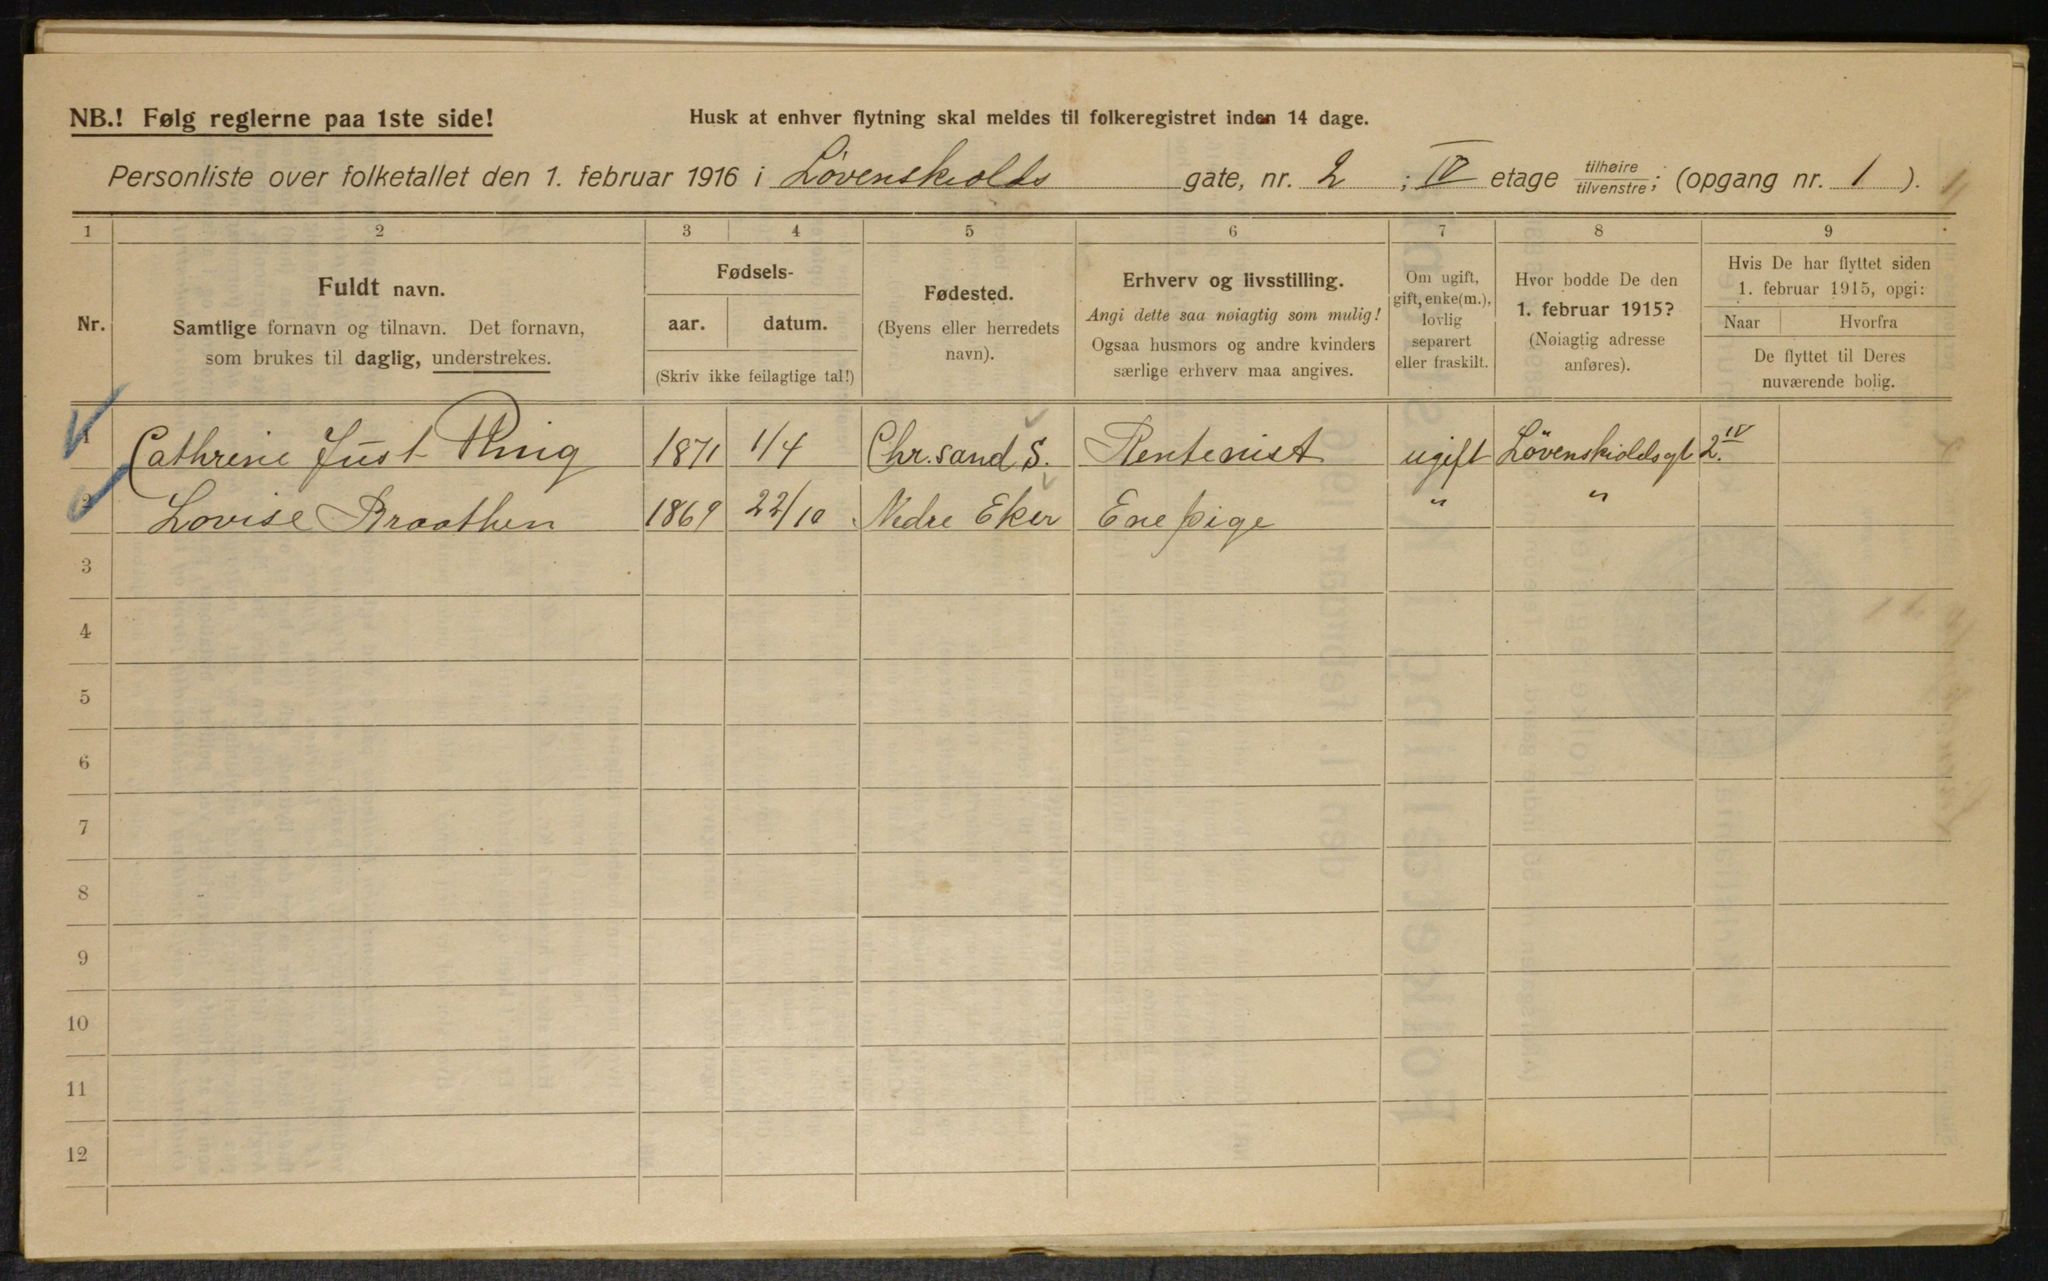 NB.! Følg reglerne paa 1ste side!
Husk at enhver flytning skal meldes til folkeregistret inden 14 dage.
Personliste over folketallet den 1. februar 1916 i Løvenskiolds gate, nr. 2 ; IV etage tilhøire/tilvenstre; (opgang nr. 1 ).
1 2 3 4 5 6 7 8 9
Nr.
Fuldt navn.
Samtlige fornavn og tilnavn. Det fornavn,
som brukes til daglig, understrekes.
Fødsels-
aar. datum.
(Skriv ikke feilagtige tal!)
Fødested.
(Byens eller herredets
navn).
Erhverv og livsstilling.
Angi dette saa nøiagtig som mulig!
Ogsaa husmors og andre kvinders
særlige erhverv maa angives.
Om ugift,
gift, enke(m.),
lovlig
separert
eller fraskilt.
Hvor bodde De den
1. februar 1915?
(Nøiagtig adresse
anføres).
Hvis De har flyttet siden
1. februar 1915, opgi:
Naar Hvorfra
De flyttet til Deres
nuværende bolig.
1 Cathrine Just Ring 1871 1/4 Chr.sand S. Rentenist ugift Løvenskioldsgt 2. IV
2 Lovise Braathen 1869 22/10 Nedre Eker Enepige " "
3
4
5
6
7
8
9
10
11
12